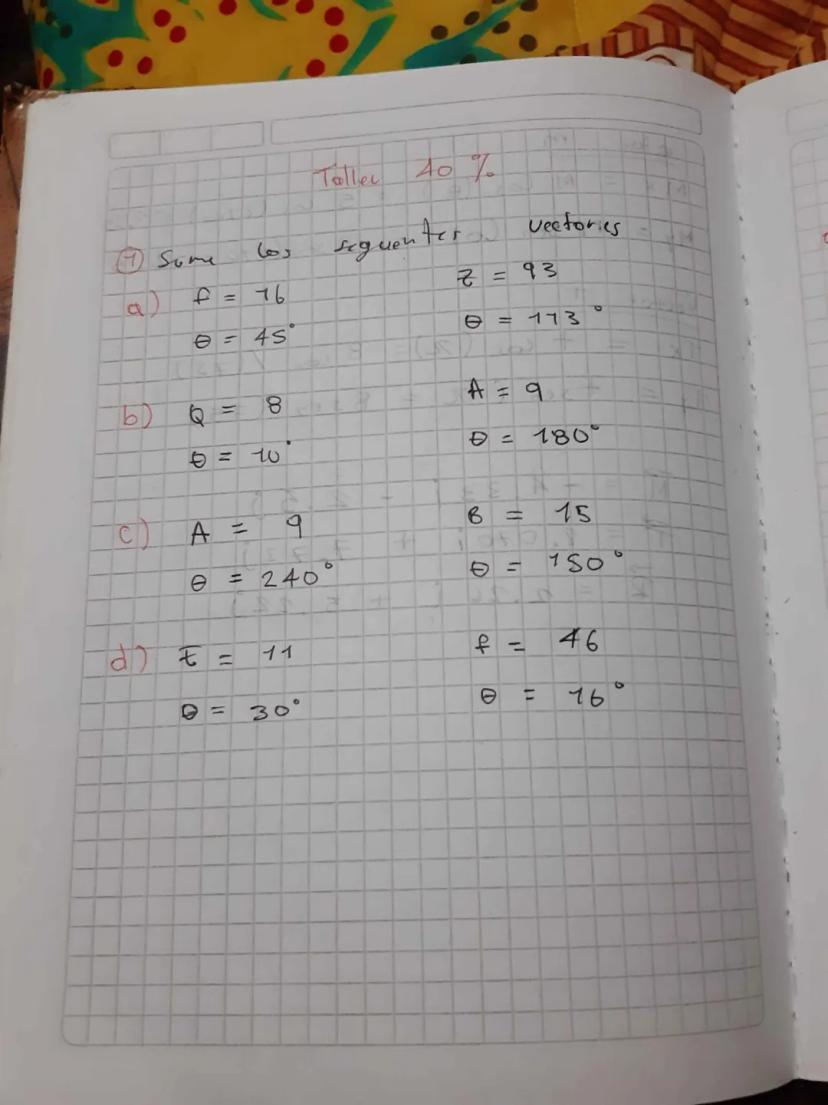 Taller 40 %
1 Sume los seguentes vectories
a) f = 16 z = 93
θ = 45° θ = 113°
b) Q = 8 A = 9
θ = 10° θ = 180°
c) A = 9 B = 15
θ = 240° θ = 150°
d) t = 11 f = 46
θ = 30° θ = 16°